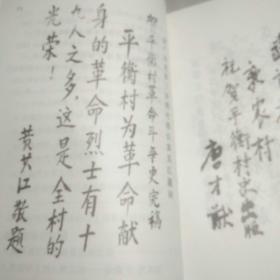 祝贺平衡村史出版
唐才猷
平衡村革命斗争史完稿
平衡村为革命献
身的革命烈士有十
九人之多，这是全村的
光荣！
黄其江敬题